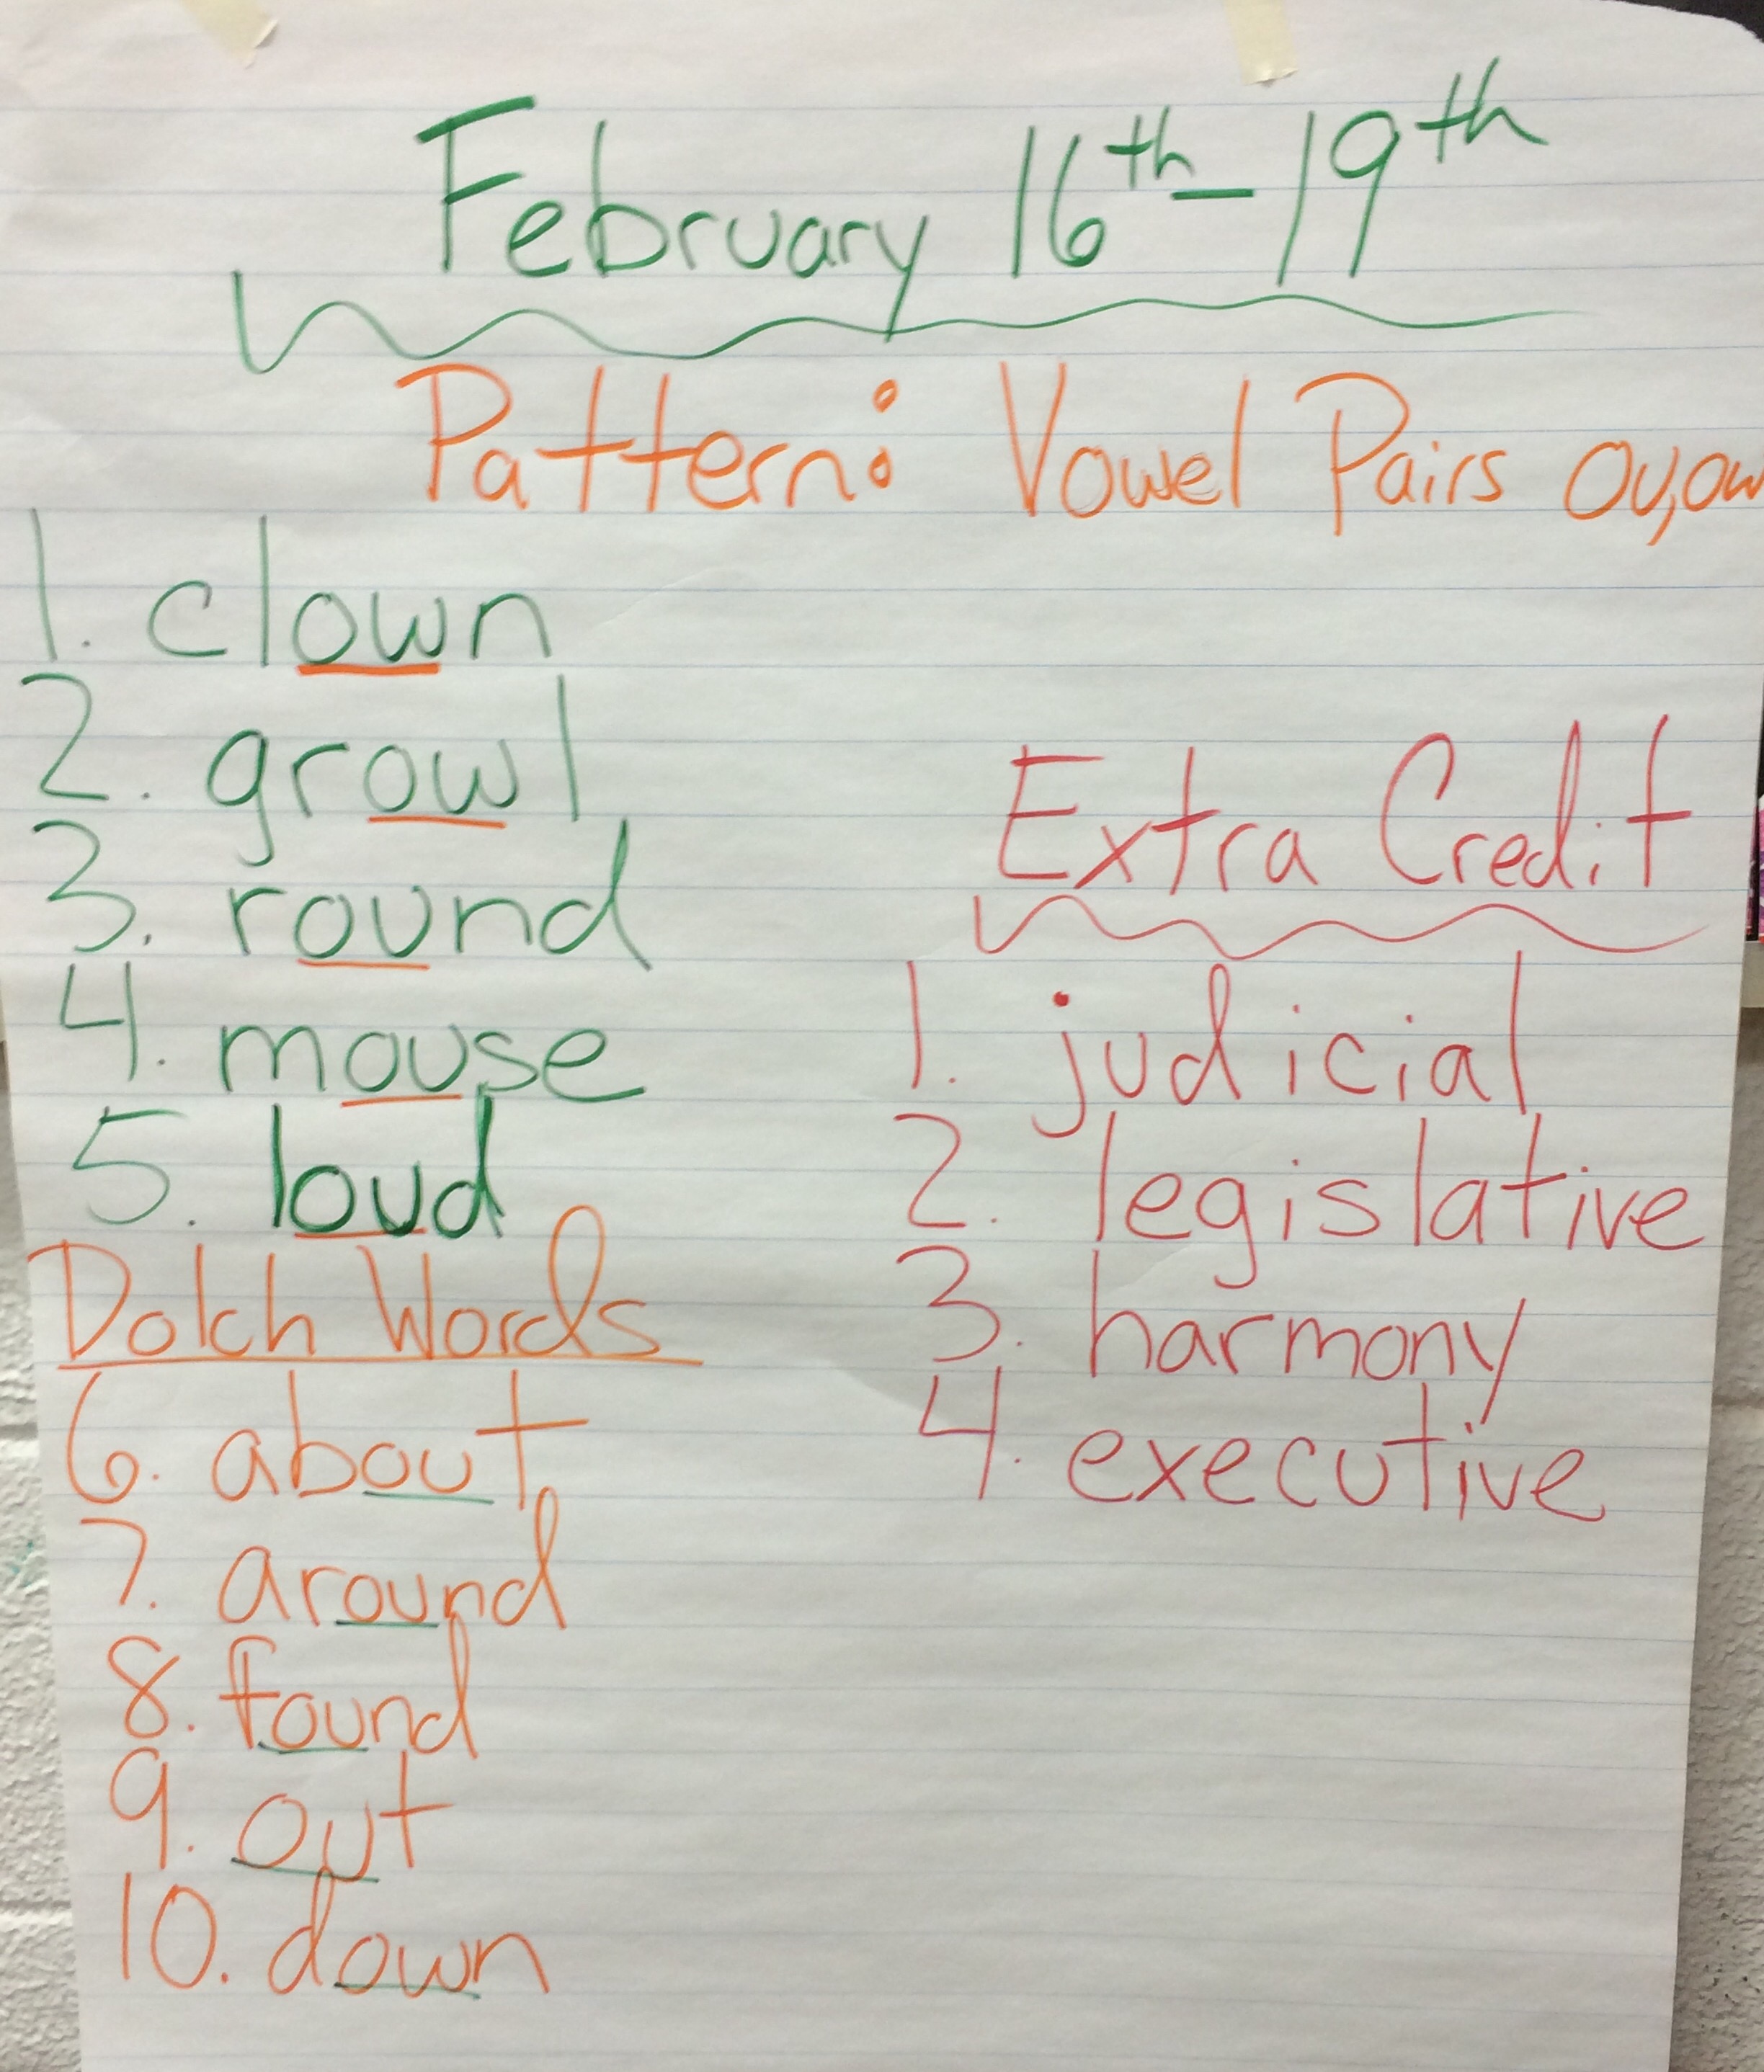 February 16th-19th
Pattern: Vowel Pairs ou,ow
1. clown
2. growl
3. round
4. mouse
5. loud
Dolch Words
6. about
7. around
8. found
9. out
10. down
Extra Credit
1. judicial
2. legislative
3. harmony
4. executive